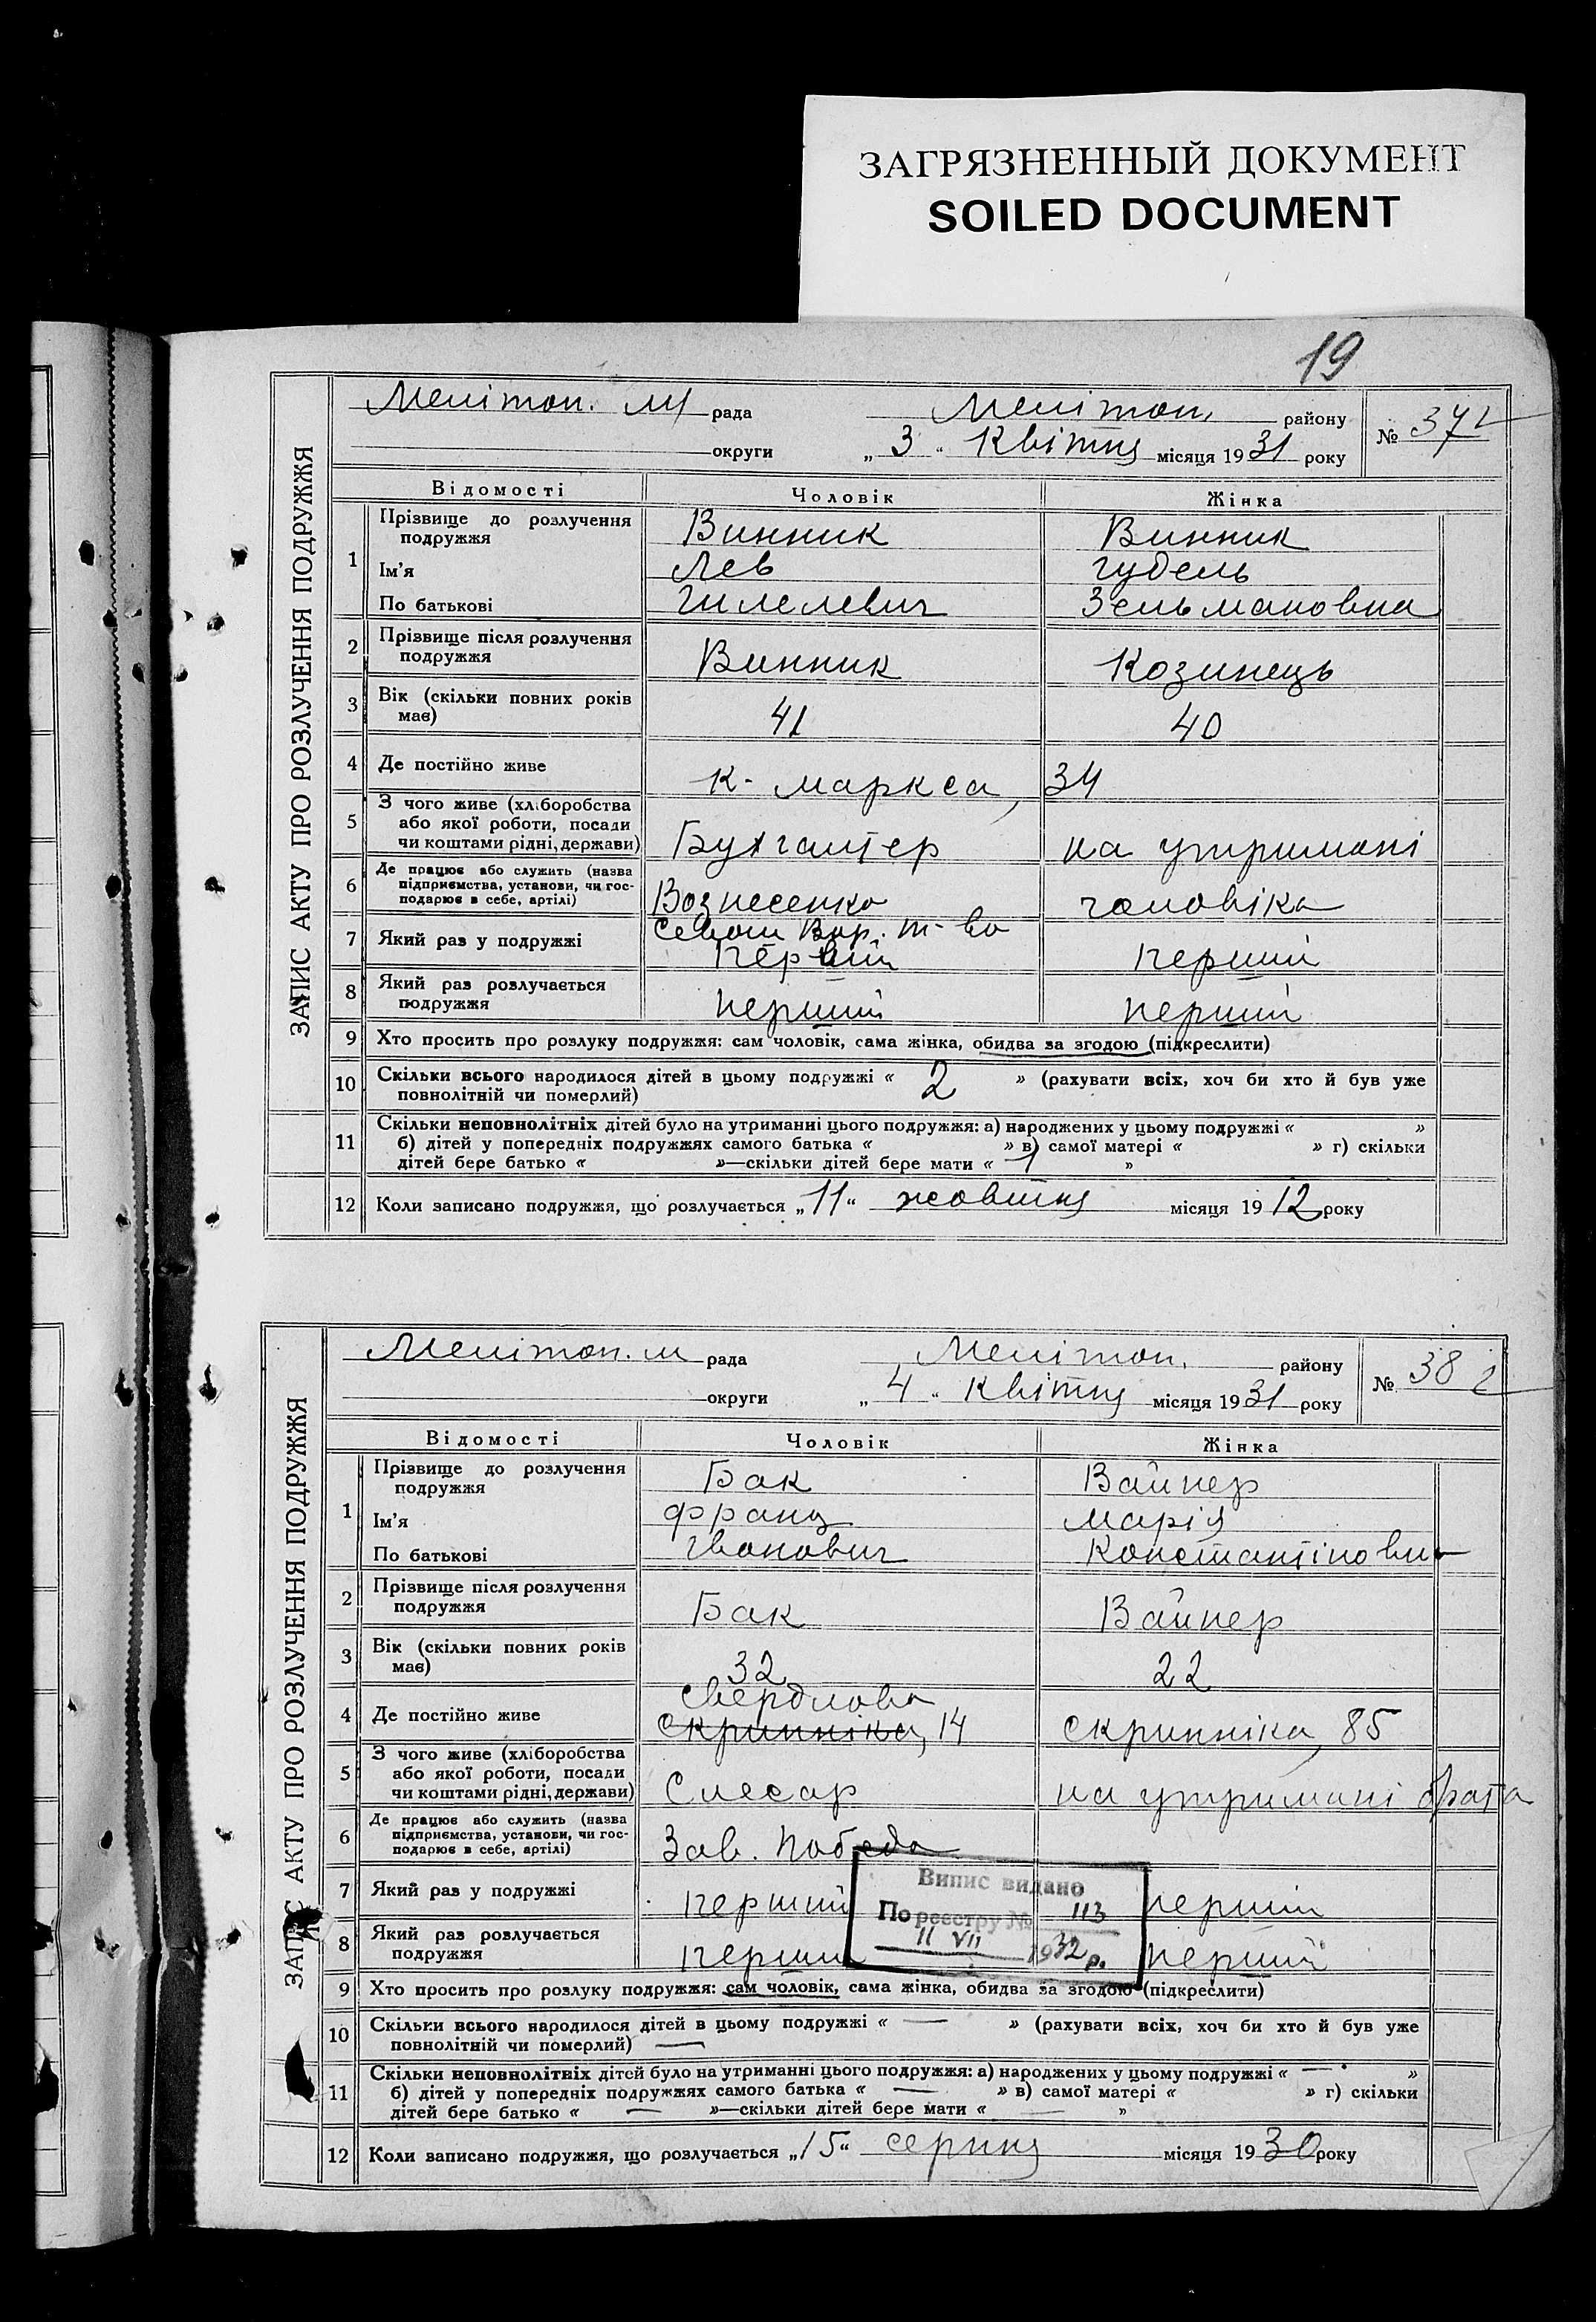 ЗАГРЯЗНЕННЫЙ ДОКУМЕНТ
SOILED DOCUMENT
19
ЗАПИС АКТУ ПРО РОЗЛУЧЕННЯ ПОДРУЖЖЯ
Мелітоп. м рада Мелітоп. району № 37
округи „3“ Квітня місяця 1931 року
Відомості Чоловік Жінка
1 Прізвище до розлучення подружжя Винник Винник
Ім'я Лев Гудель
По батькові Гилелевич Зельмановна
2 Прізвище після розлучення подружжя Винник Козинець
3 Вік (скільки повних років має) 41 40
4 Де постійно живе К. Маркса, 34
5 З чого живе (хліборобства або якої роботи, посади чи коштами рідні, держави) Бухгалтер на утримані
6 Де працює або служить (назва підприємства, установи, чи господарює в себе, артілі) Вознесенка чоловіка
т-во
7 Який раз у подружжі перший перший
8 Який раз розлучається подружжя перший перший
9 Хто просить про розлуку подружжя: сам чоловік, сама жінка, обидва за згодою (підкреслити)
10 Скільки всього народилося дітей в цьому подружжі « 2 » (рахувати всіх, хоч би хто й був уже
повнолітній чи померлий)
11 Скільки неповнолітніх дітей було на утриманні цього подружжя: а) народжених у цьому подружжі « »
б) дітей у попередніх подружжях самого батька « » в) самої матері « » г) скільки
дітей бере батько « »—скільки дітей бере мати « 1 »
12 Коли записано подружжя, що розлучається „11“ жовтня місяця 1912 року
ЗАПИС АКТУ ПРО РОЗЛУЧЕННЯ ПОДРУЖЖЯ
Мелітоп. м рада Мелітоп. району № 38
округи „4“ Квітня місяця 1931 року
Відомості Чоловік Жінка
1 Прізвище до розлучення подружжя Бак Вайнер
Ім'я Франц Марія
По батькові Іванович Константіновна
2 Прізвище після розлучення подружжя Бак Вайнер
3 Вік (скільки повних років має) 32 22
Свердлова
4 Де постійно живе Скрипніка, 14 Скрипніка, 85
5 З чого живе (хліборобства або якої роботи, посади чи коштами рідні, держави) Слесар на утримані брата
6 Де працює або служить (назва підприємства, установи, чи господарює в себе, артілі) Зав. Победа
7 Який раз у подружжі перший перший
8 Який раз розлучається подружжя перший перший
Випис видано
По реєстру № 113
11 VII 1932 р.
9 Хто просить про розлуку подружжя: сам чоловік, сама жінка, обидва за згодою (підкреслити)
10 Скільки всього народилося дітей в цьому подружжі « — » (рахувати всіх, хоч би хто й був уже
повнолітній чи померлий) —
11 Скільки неповнолітніх дітей було на утриманні цього подружжя: а) народжених у цьому подружжі « — »
б) дітей у попередніх подружжях самого батька « — » в) самої матері « » г) скільки
дітей бере батько « — »—скільки дітей бере мати « — »
12 Коли записано подружжя, що розлучається „15“ серпня місяця 1930 року